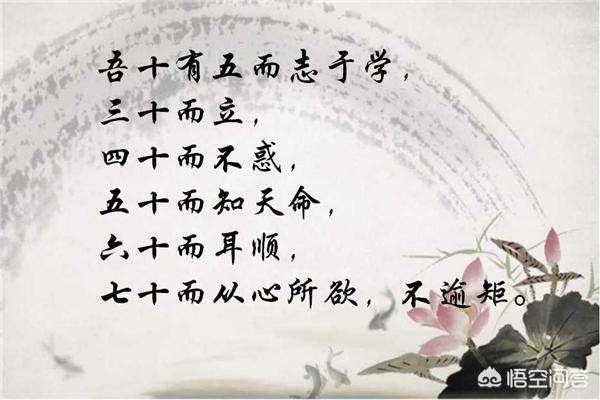 吾十有五而志于学，
三十而立，
四十而不惑，
五十而知天命，
六十而耳顺，
七十而从心所欲，不逾矩。
悟空问答